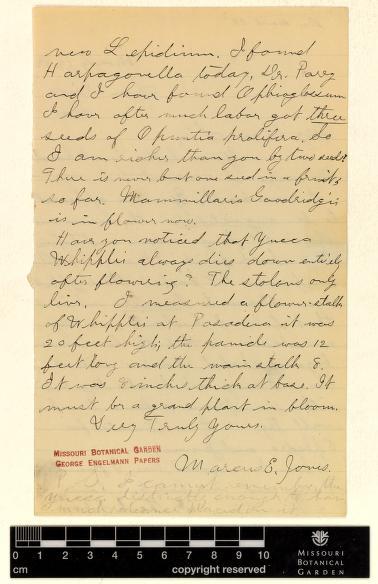 new Lepidium. I found
Harpagonella today, Dr. Parry
and I have found Ophioglossum
I have after much labor got three
seeds of Opuntia prolifera. So
I am richer than you by two seeds.
There is never but one seed in a fruit
so far. Mammillaria Goodridgii
is in flower now.
Have you noticed that Yucca
Whipplei always dies down entirely
after flowering? The stolons only
live. I measured a flower-stalk
of Whipplei at Pasadena it was
20 feet high; the panicle was 12
feet long and the main stalk 8.
It was 8 inches thick at base. It
must be a grand plant in bloom.
Very Truly Yours.
Marcus E. Jones.
MISSOURI BOTANICAL GARDEN
GEORGE ENGELMANN PAPERS
0 1 2 3 4 5 6 7 8 9 10
cm copyright reserved
MISSOURI
BOTANICAL
GARDEN